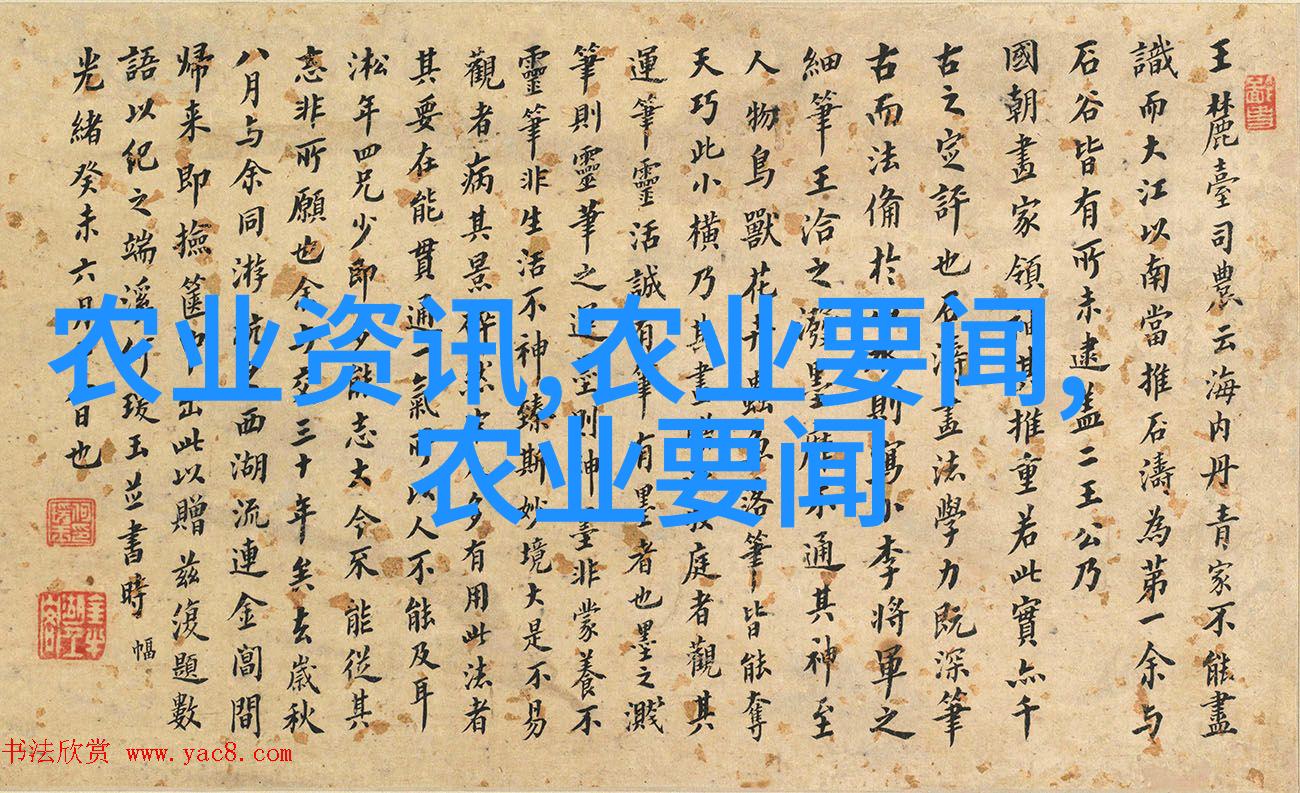 王麓臺司農云海内丹青家不能盡
識而大江以南當推石濤為第一余与
石谷皆有所未逮盖二王公乃
國朝畫家領 其推重若此實亦千
古之定評也石濤畫法學力既深筆
古而法備於 則寫 李將軍之
細筆王洽之潑墨 不通其神至
人物鳥獸花卉蟲魚落筆皆能奪
天巧此小横乃其畫 庭者觀其
運筆靈活誠有筆有墨者也墨之濺
筆則靈筆之運 則神墨非蒙養不
靈筆非生活不神 臻斯妙境大是不易
觀者病其景 多有用此法者
其要在能貫通一氣 以人不能及耳
淞年四兄少即 志大今不能従其
志非所願也余 交三十年矣去歲秋
八月与余同游杭 西湖流連金閶間
帰来即撿篋 出此以贈兹復題數
語以紀之端溪何瑗玉并書時
光緒癸未六月 日也
幅
农业资讯,农业要闻,
农业要闻
书法欣赏 www.yac8.com